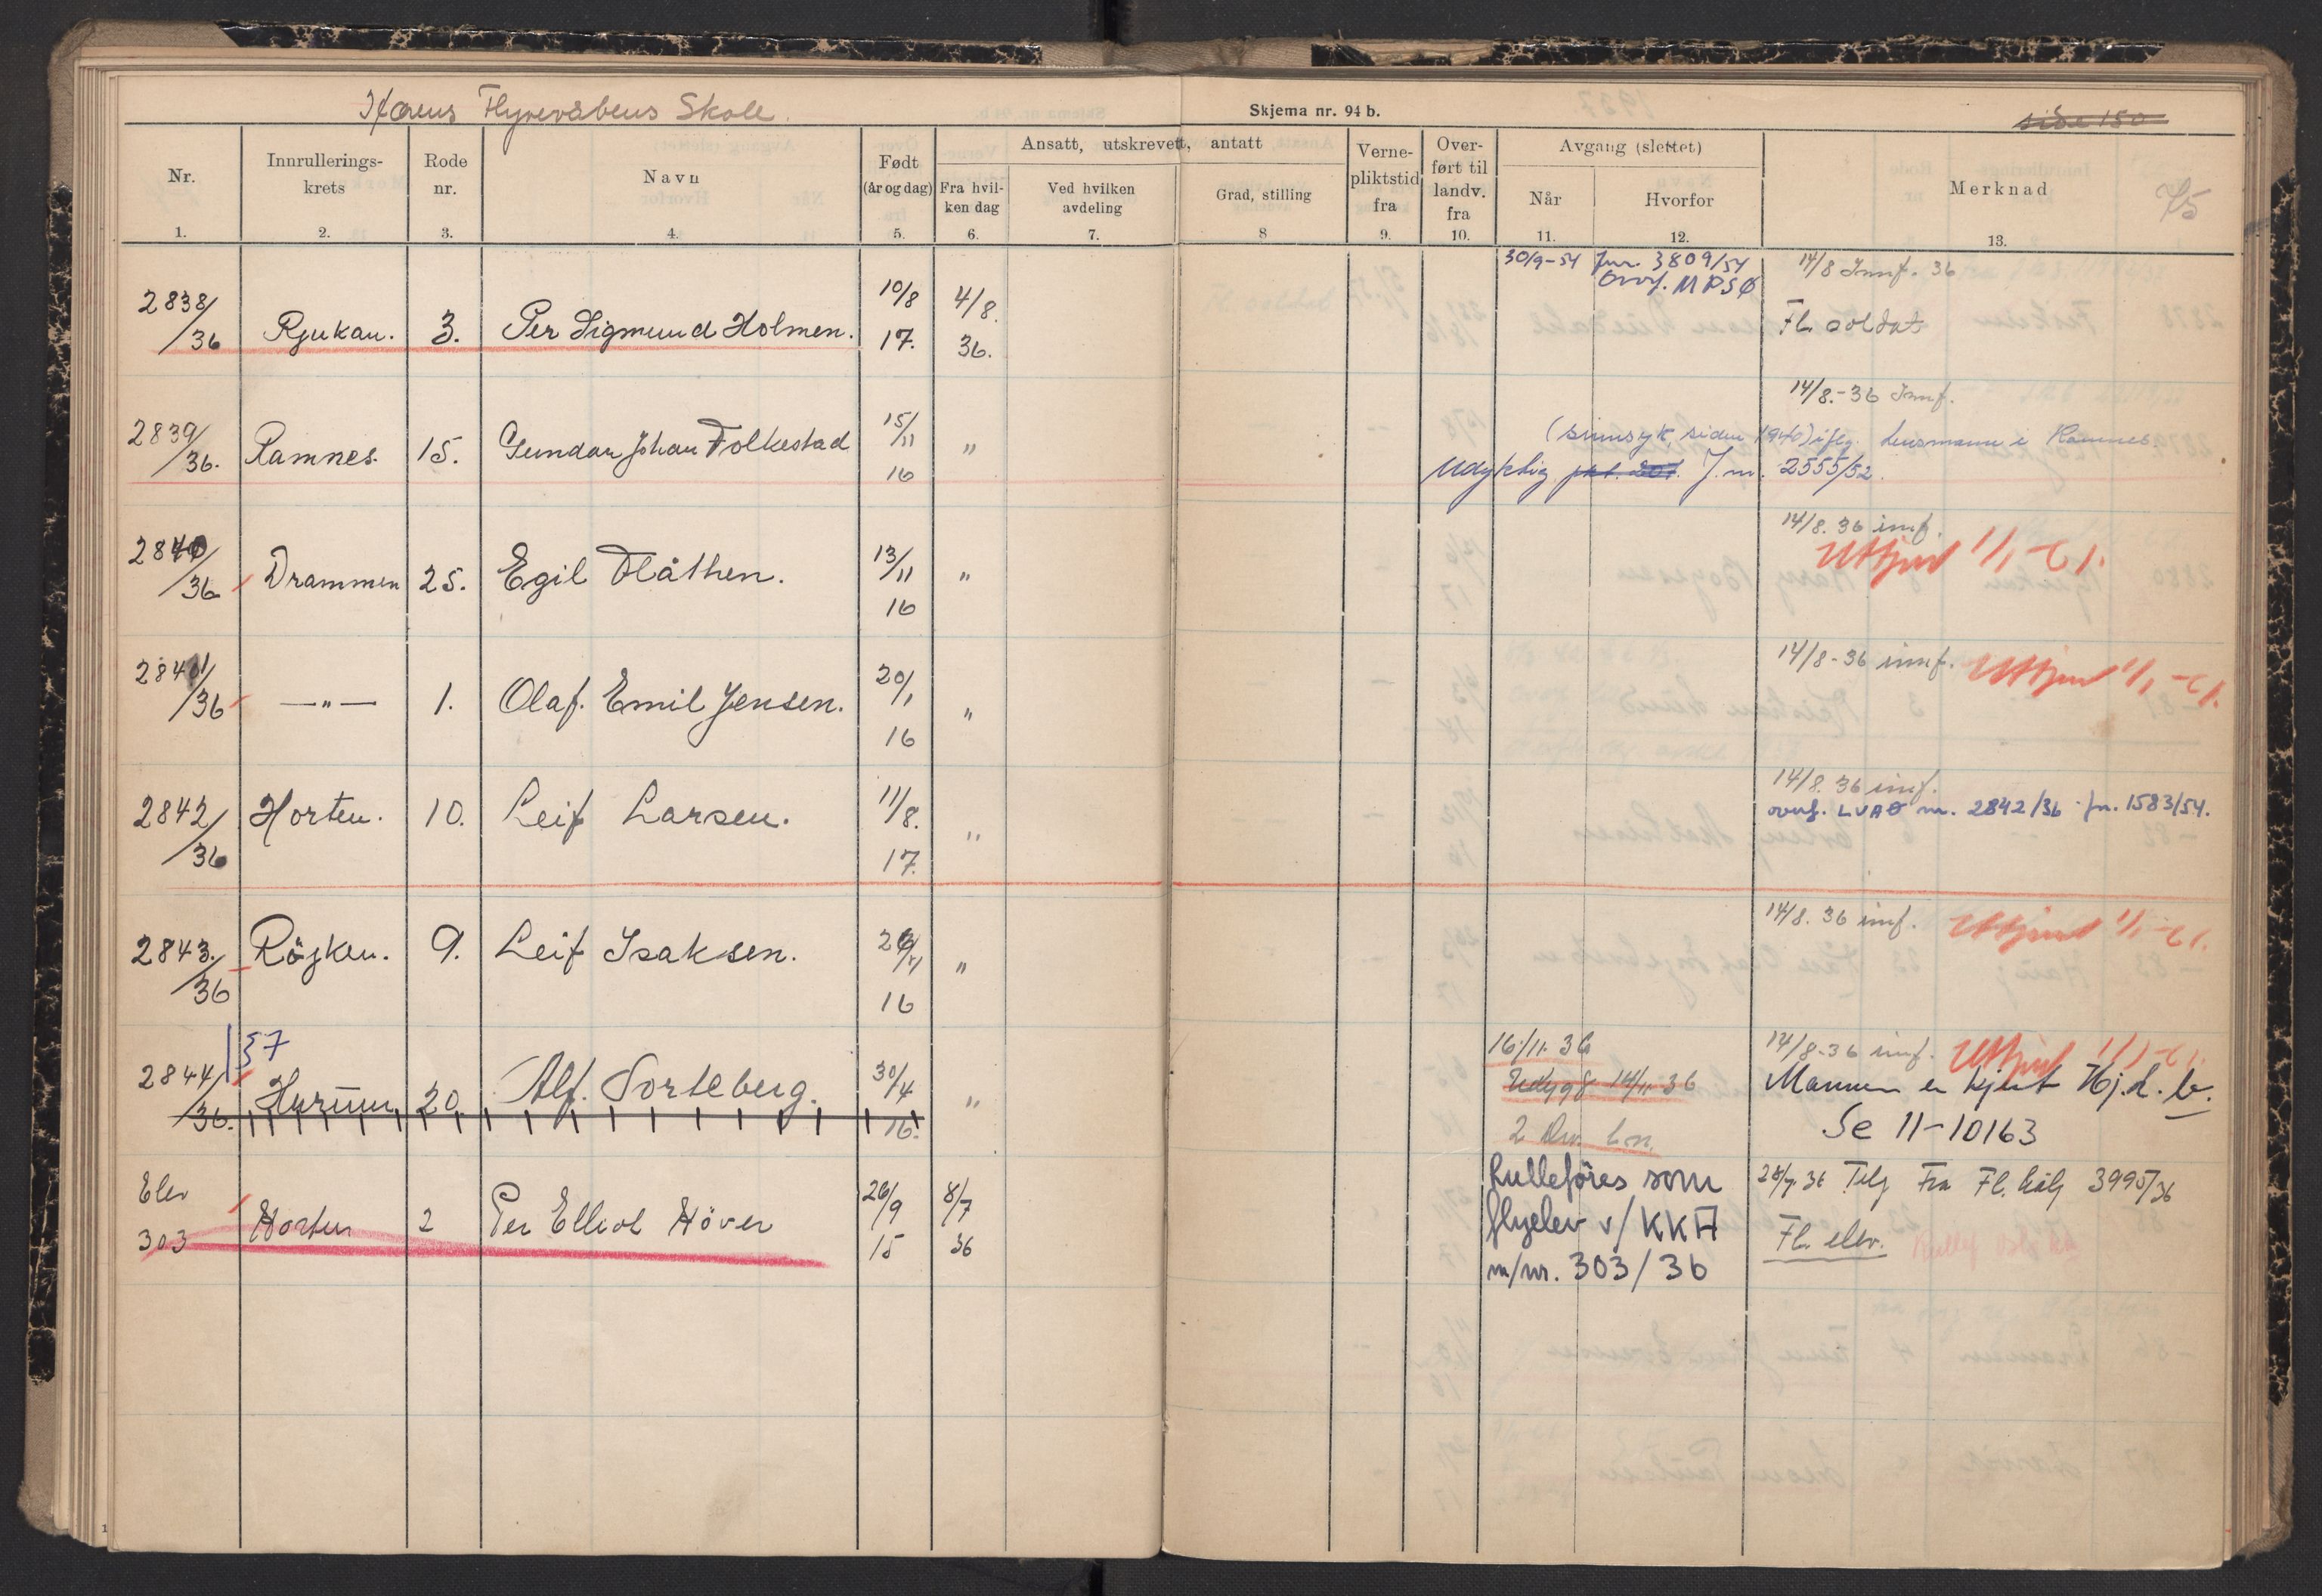 Hærens Flyvevåbens Skole.
Skjema nr. 94 b.
side 150
75
Nr.
Innrullerings-
krets
Rode
nr.
Navn
Født
(år og dag)
Ansatt, utskrevett, antatt
Fra hvil-
ken dag
Ved hvilken
avdeling
Grad, stilling
Verne-
pliktstid
fra
Over-
ført til
landv.
fra
Avgang (slettet)
Når
Hvorfor
Merknad
1. 2. 3. 4. 5. 6. 7. 8 9. 10. 11. 12. 13.
2838/36 Rjukan. 3. Per Sigmund Holmen. 10/8 17. 4/8. 36.
30/9-54 Jnr. 3809/54
Ovf. MPSØ
14/8 Innf. 36
Fl. soldat
2839/36. Ramnes. 15. Gundar Johan Folkestad 15/11 16 "
14/8.-36 Innf.
(sinnsyk siden 1940) iflg. Lensmann i Ramnes.
Udyktig J.nr. 2555/52.
2840/36 Drammen 25. Egil Flåthen. 13/11 16 "
14/8. 36 innf.
Uttjent 1/1-61.
2841/36 —"— 1. Olaf. Emil Jensen. 20/1 16 "
14/8-36 innf. Uttjent 1/1-61.
2842/36 Horten. 10. Leif Larsen. 11/8. 17. "
14/8. 36 innf.
overf. LVAØ nr. 2842/36 jnr. 1583/54.
2843./36 Röyken. 9. Leif Isaksen. 16 "
14/8. 36 innf. Uttjent 1/1-61.
§ 7
2844/36. Hurum 20. Alf. Sorteberg. 30/4 16. "
16/11. 36
14/11 36
2
14/8-36 innf. Uttjent 1/1-61.
Mannen er kjent Hj.d.b.
Se 11-10163
Elev 303 Horten 2 Per Elliot Höver 26/9 15 8/7 36
Rulleføres som
flyelev v/KKA
m/nr. 303/36
28/7. 36 Fra Fl. 3995/36
Fl. elev.